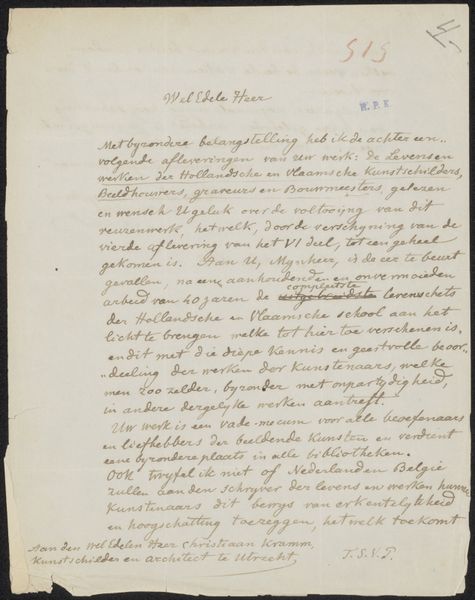 515
W. P. K.
Wel Edele Heer
Met byzondere belangstelling heb ik de achter een„
volgende afleveringen van Uw werk: de Levens en
werken der Hollandsche en Vlaamsche Kunstschilders,
Beeldhouwers, graveurs en Bouwmeesters, gelezen
en wensch U geluk over de voltooijng van dit
reuzenwerk, hetwelk, door de verschyning van de
vierde aflevering van het VI deel, tot een geheel
gekomen is. Aan U, Mynheer, is de eer te beurt
gevallen, na een aanhoudenden en onvermoeiden
complectste
arbeid van 40 jaren de uitgebreidste levenschets
der Hollandsche en Vlaamsche school aan het
licht te brengen welke tot hier toe verschenen is,
en dit met die diepe kennis en geestvolle beoor„
„deeling der werken der Kunstenaars, welke
men zoo zelder, byzonder met onpartydigheid,
in andere dergelyke werken aantreft.
Uw werk is een vade-mecum voor alle beoefenaars
en liefhebbers der beeldende Kunsten en verdient
eene byzondere plaats in alle bibliotheken.
Ook twyfel ik niet of Nederland en België
zullen aan den schryver der levens en werken hunner
Kunstenaars dit bewys van erkentelykheid
en hoogschatting toezeggen, hetwelk toekomt
Aan den Wel Edelen Heer Christiaan Kramm,
Kunstschilder en architect te Utrecht,
T.S.V.P.